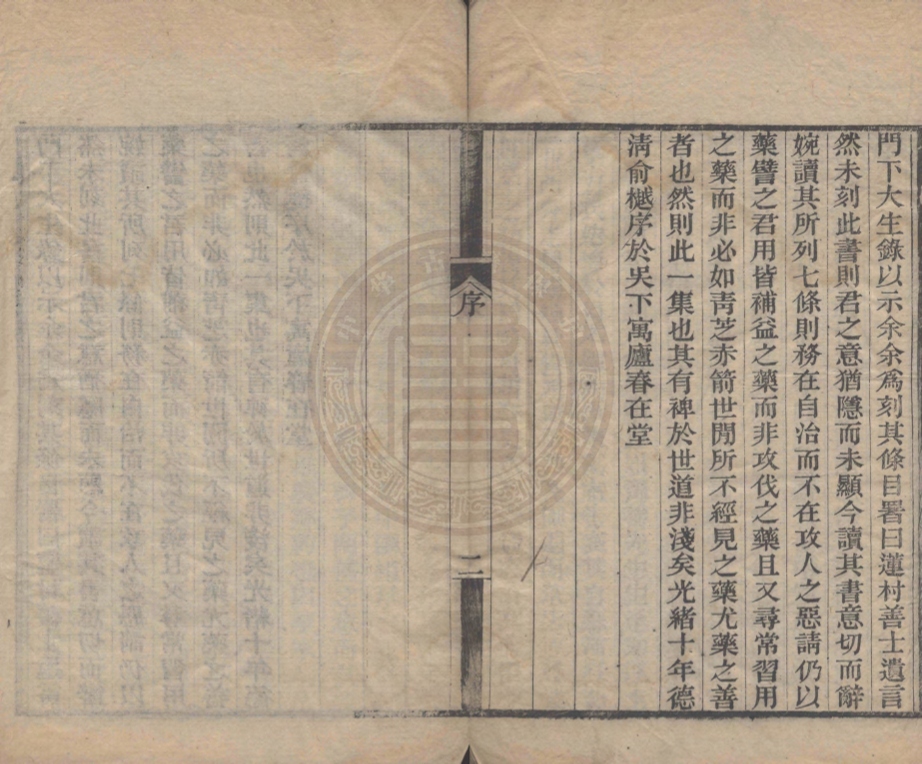 門下大生錄以示余余爲刻其條目署曰蓮村善士遺言
然未刻此書則君之意猶隱而未顯今讀其書意切而辭
婉讀其所列七條則務在自治而不在攻人之惡請仍以
藥譬之君用皆補益之藥而非攻伐之藥且又尋常習用
之藥而非必如靑芝赤箭世閒所不經見之藥尤藥之善
者也然則此一集也其有裨於世道非淺矣光緒十年德
淸俞樾序於吳下寓廬春在堂
序
二